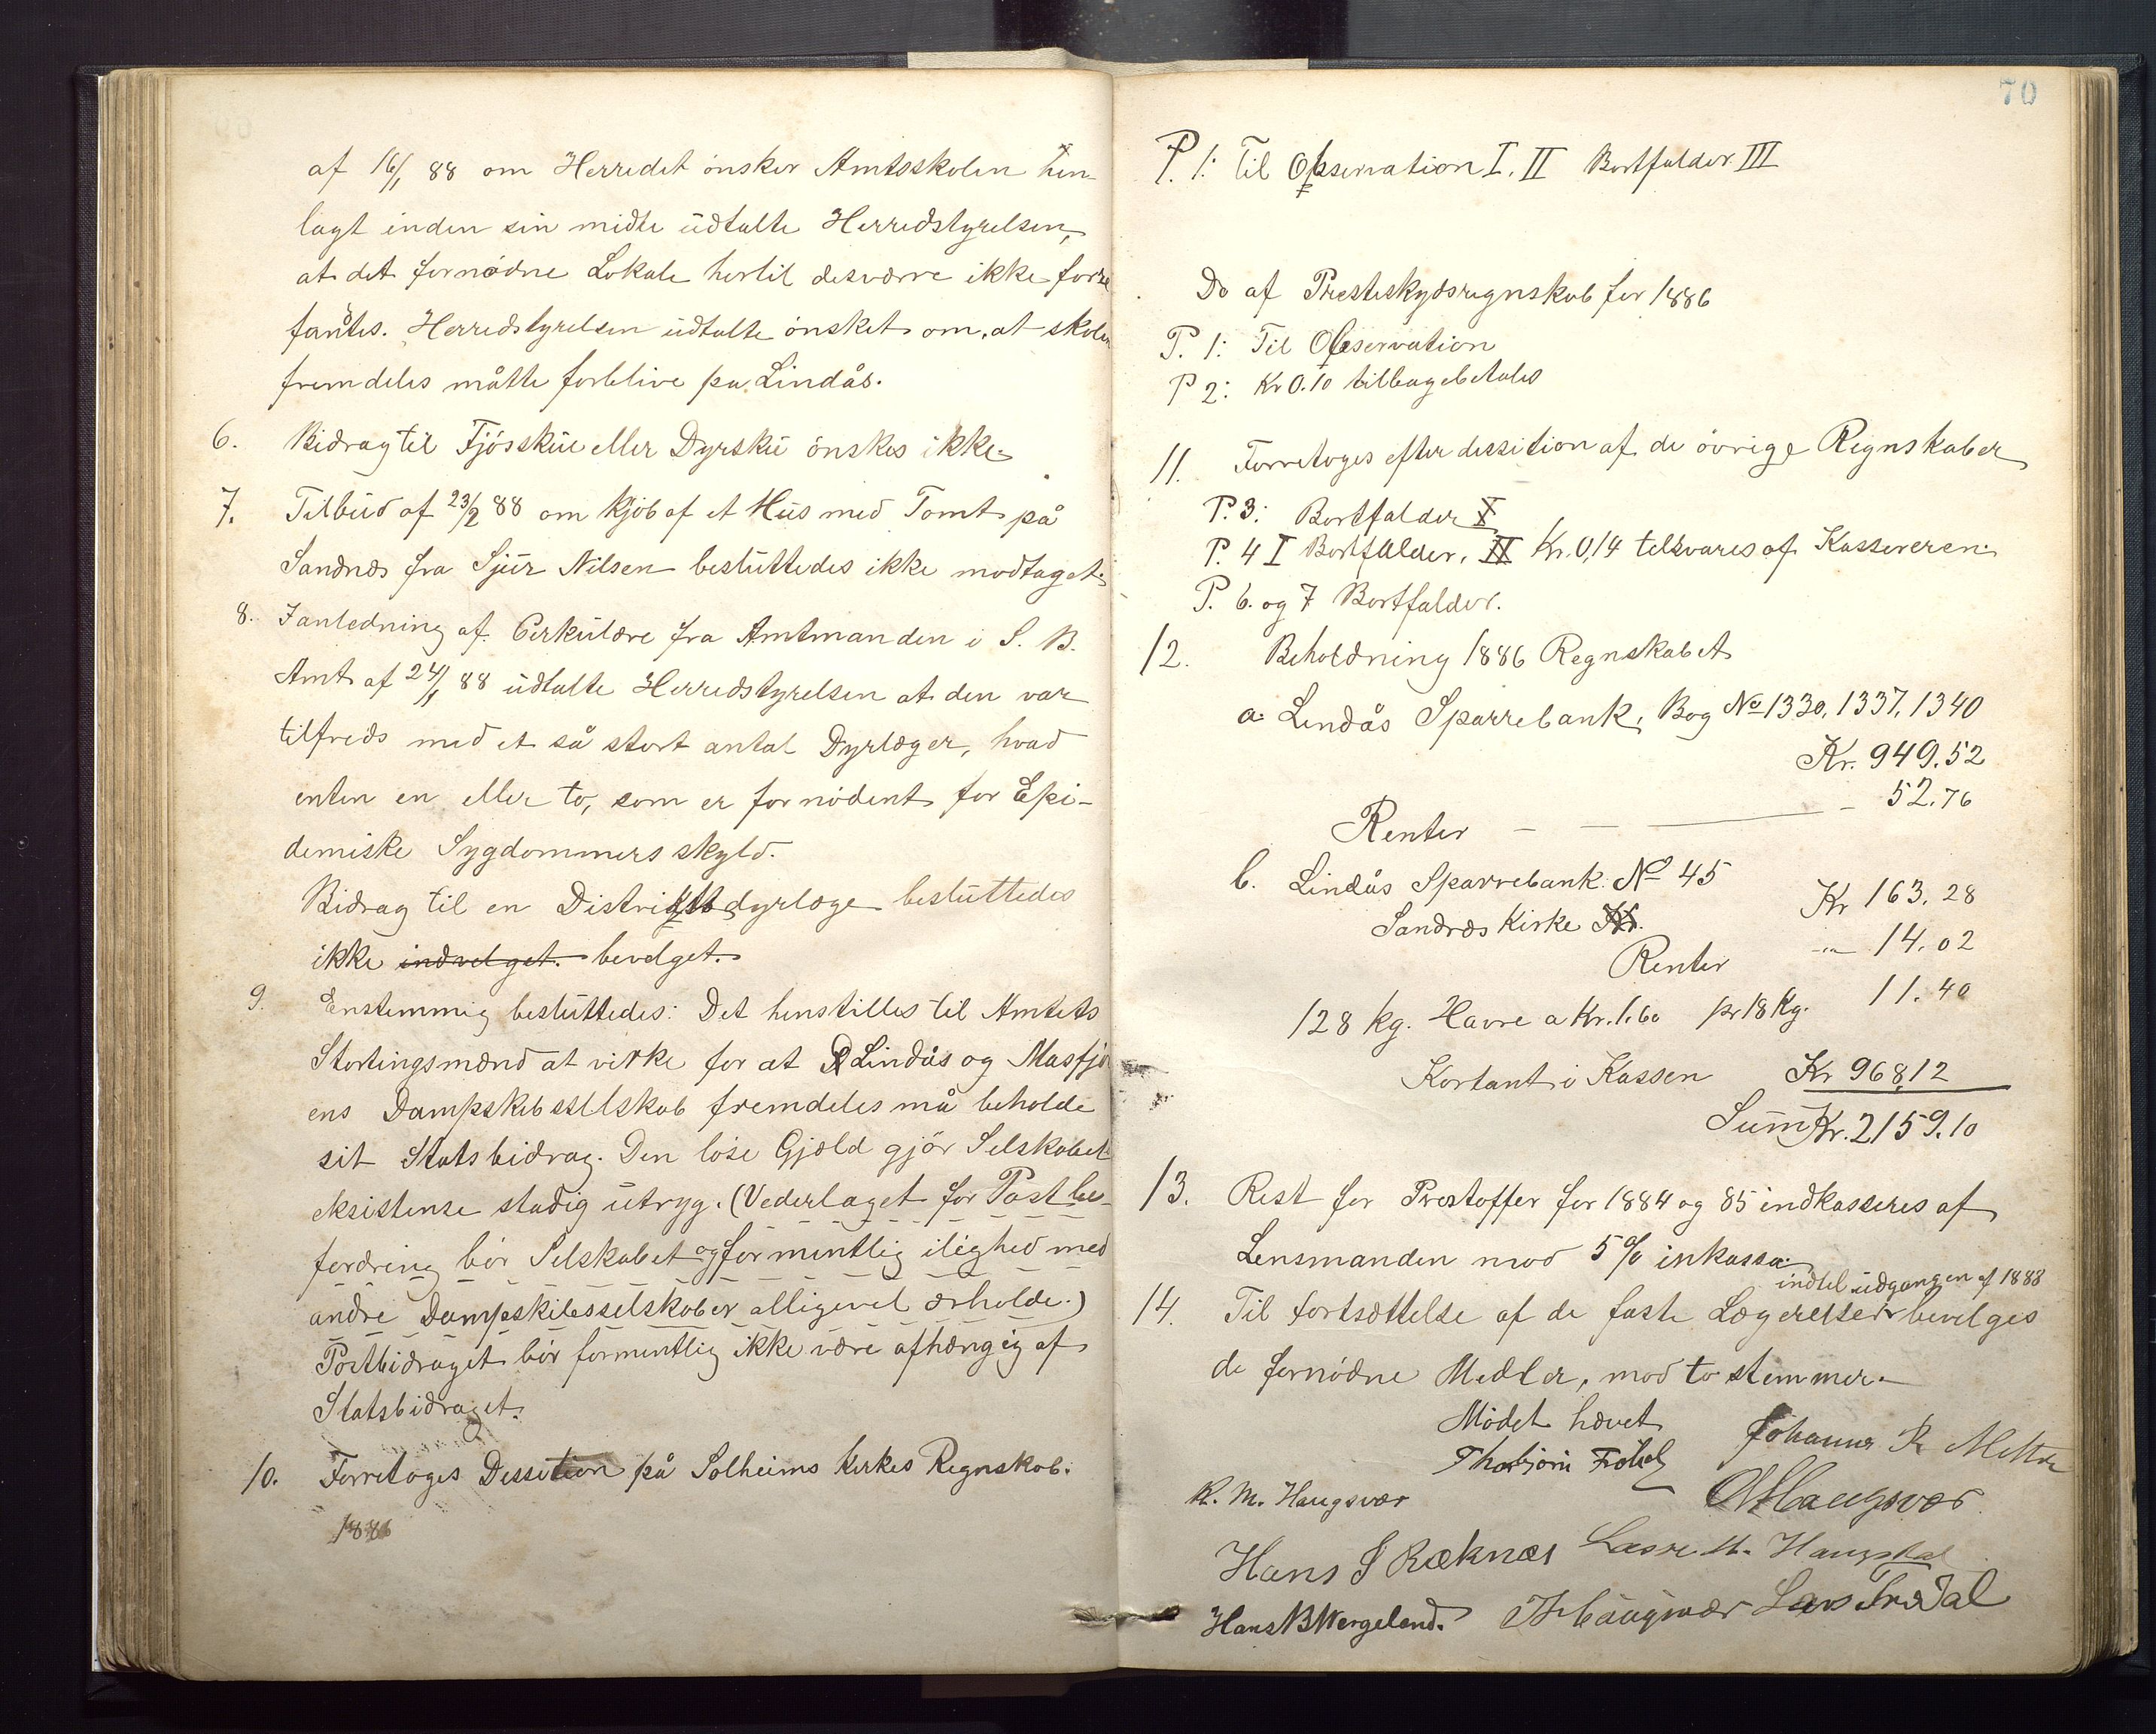 af 16/1 88 om Herredet ønsker Amtsskolen hen-
lagt inden sin midte udtalte Herredstyrelsen,
at det fornødne Lokale hertil desværre ikke fore
fantes. Herredstyrelsen udtalte ønsket om, at skolen
fremdeles måtte forblive pa Lindås.
6. Bidrag til Fjösskue eller Dyrsku önskes ikke.
7. Tilbud af 23/2 88 om Kjöb af et Hus med Tomt på
Sandnæs fra Sjur Nilsen besluttedes ikke modtaget.
8. I anledning af Cirkulære fra Amtmanden i S. B.
Amt af 24/1 88 udtalte Herredstyrelsen at den var
tilfreds med et så stort antal Dyrlæger, hvad
enten en eller to, som er fornødent for Epi-
demiske Sygdommers skyld.
Bidrag til en Distriktsdyrlæge besluttedes
ikke indvelget. bevelget.
9. Enstemmig besluttedes: Det henstilles til Amtets
Stortingsmænd at virke for at Lindås og Masfjor
ens Dampskibsselskab fremdeles må beholde
sit Statsbidrag. Den löse Gjæld gjör Selskabet
eksistense stadig utryg. (Vederlaget for Postbe-
fordring bör Selskabet og formentlig i lighed med
andre Dampskibsselskaber alligevel ærholde.)
Postbidraget bör formentlig ikke være afhængig af
Statsbidraget.
10. Forretoges Dessition på Solheims Kirkes Regnskab.
1886
70
P. 1: Til Observation I. II Bortfalder III
Do af Presteskydsregnskab for 1886
P. 1: Til Observation
P 2: Kr 0.10 tilbagebetales
11. Forretoges efter dessition af de øvrige Regnskaber
P. 3: Bortfalder
P. 4 I Bortfalder, II Kr. 0,14 telsvares af Kassereren.
P. 6. og 7 Bortfalder.
12. Beholdning 1886 Regnskabet
a. Lindås Sparrebank, Bog No 1330, 1337, 1340
Kr. 949.52
Renter — — — - 52.76
b. Lindås Sparrebank No 45
Sandnæs Kirke Kr. Kr 163.28
Renter -"- 14.02
128 kg. Havre a Kr. 1.60 pr 18 Kg. 11.40
Kontant i Kassen Kr 968,12
Sum Kr. 2159.10
13. Rest for Prestoffer for 1884 og 85 indkasseres af
Lensmanden mod 5 % inkasso.
indtil udgangen af 1888
14. Til fortsættelse af de faste Lægereiser bevelges
de fornødne Medler, mod to stemmer.
Mödet hævet
Johannes R Mettre
K. M. Haugsvær
Haugsvær
Hans S Ræknæs Lasse
Hans B Wergeland. Haugsvær Lars